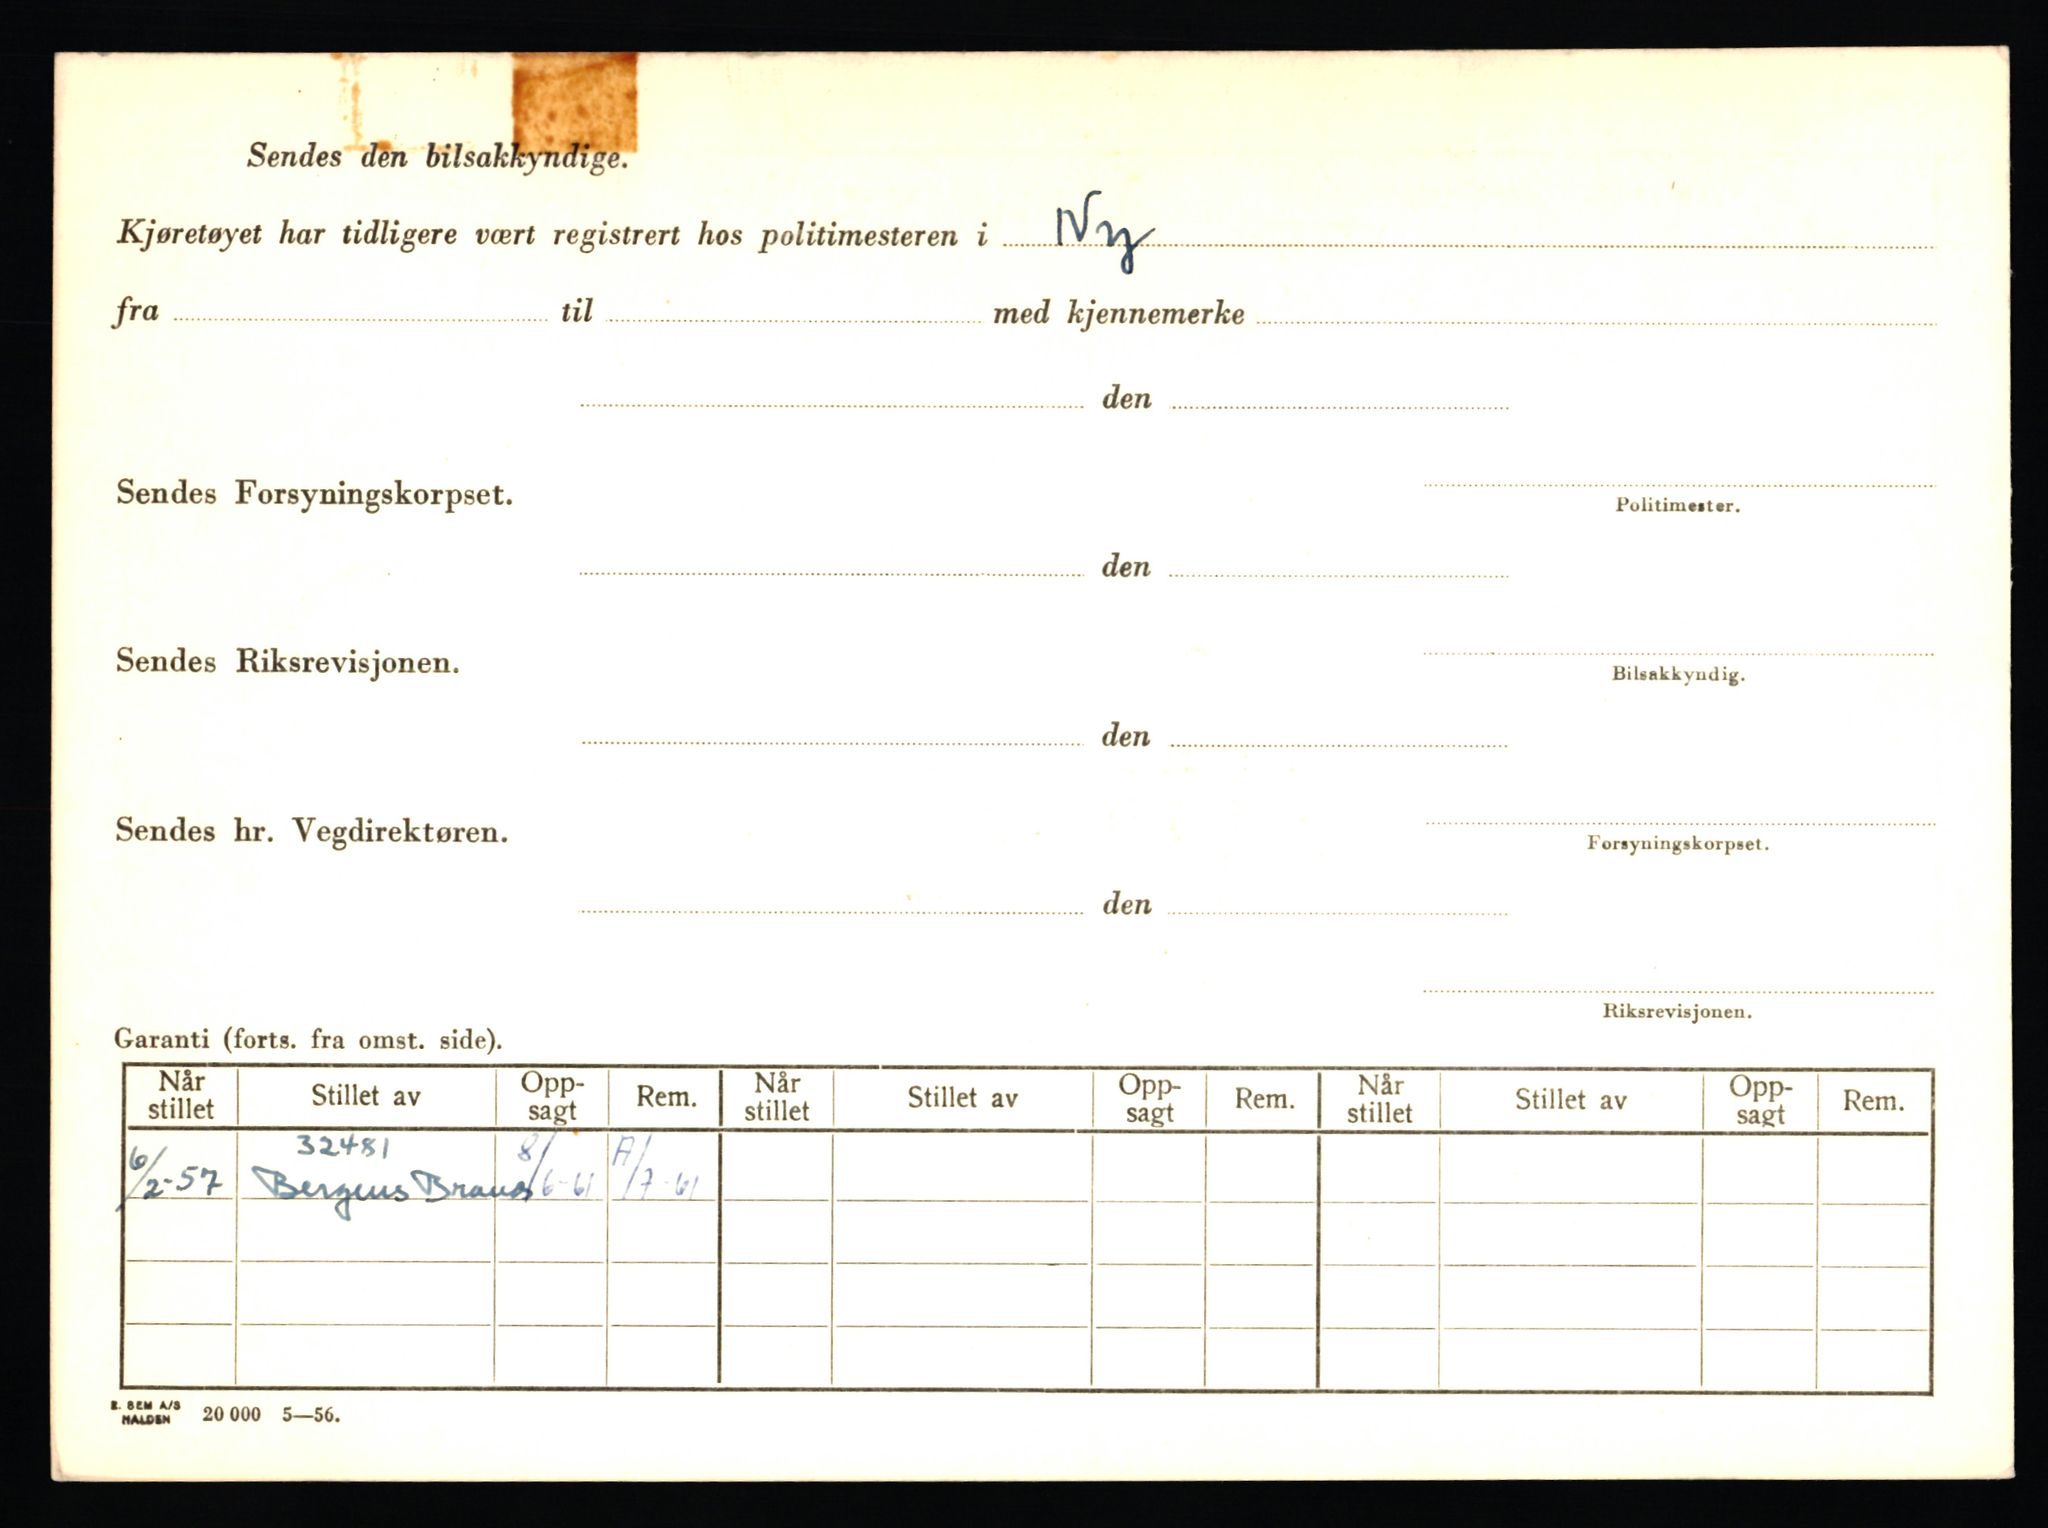 Sendes den bilsakkyndige.
Kjøretøyet har tidligere vært registrert hos politimesteren i Ny
fra til med kjennemerke
den
Sendes Forsyningskorpset.
Politimester.
den
Sendes Riksrevisjonen.
Bilsakkyndig.
den
Sendes hr. Vegdirektøren.
Forsyningskorpset.
den
Riksrevisjonen.
Garanti (forts. fra omst. side).
Når stillet Stillet av Opp-sagt Rem. Når stillet Stillet av Opp-sagt Rem. Når stillet Stillet av Opp-sagt Rem.
32481
6/2-57 Bergens Brand 8/6-61 /7-61
E. SEM A/S
HALDEN 20 000 5—56.